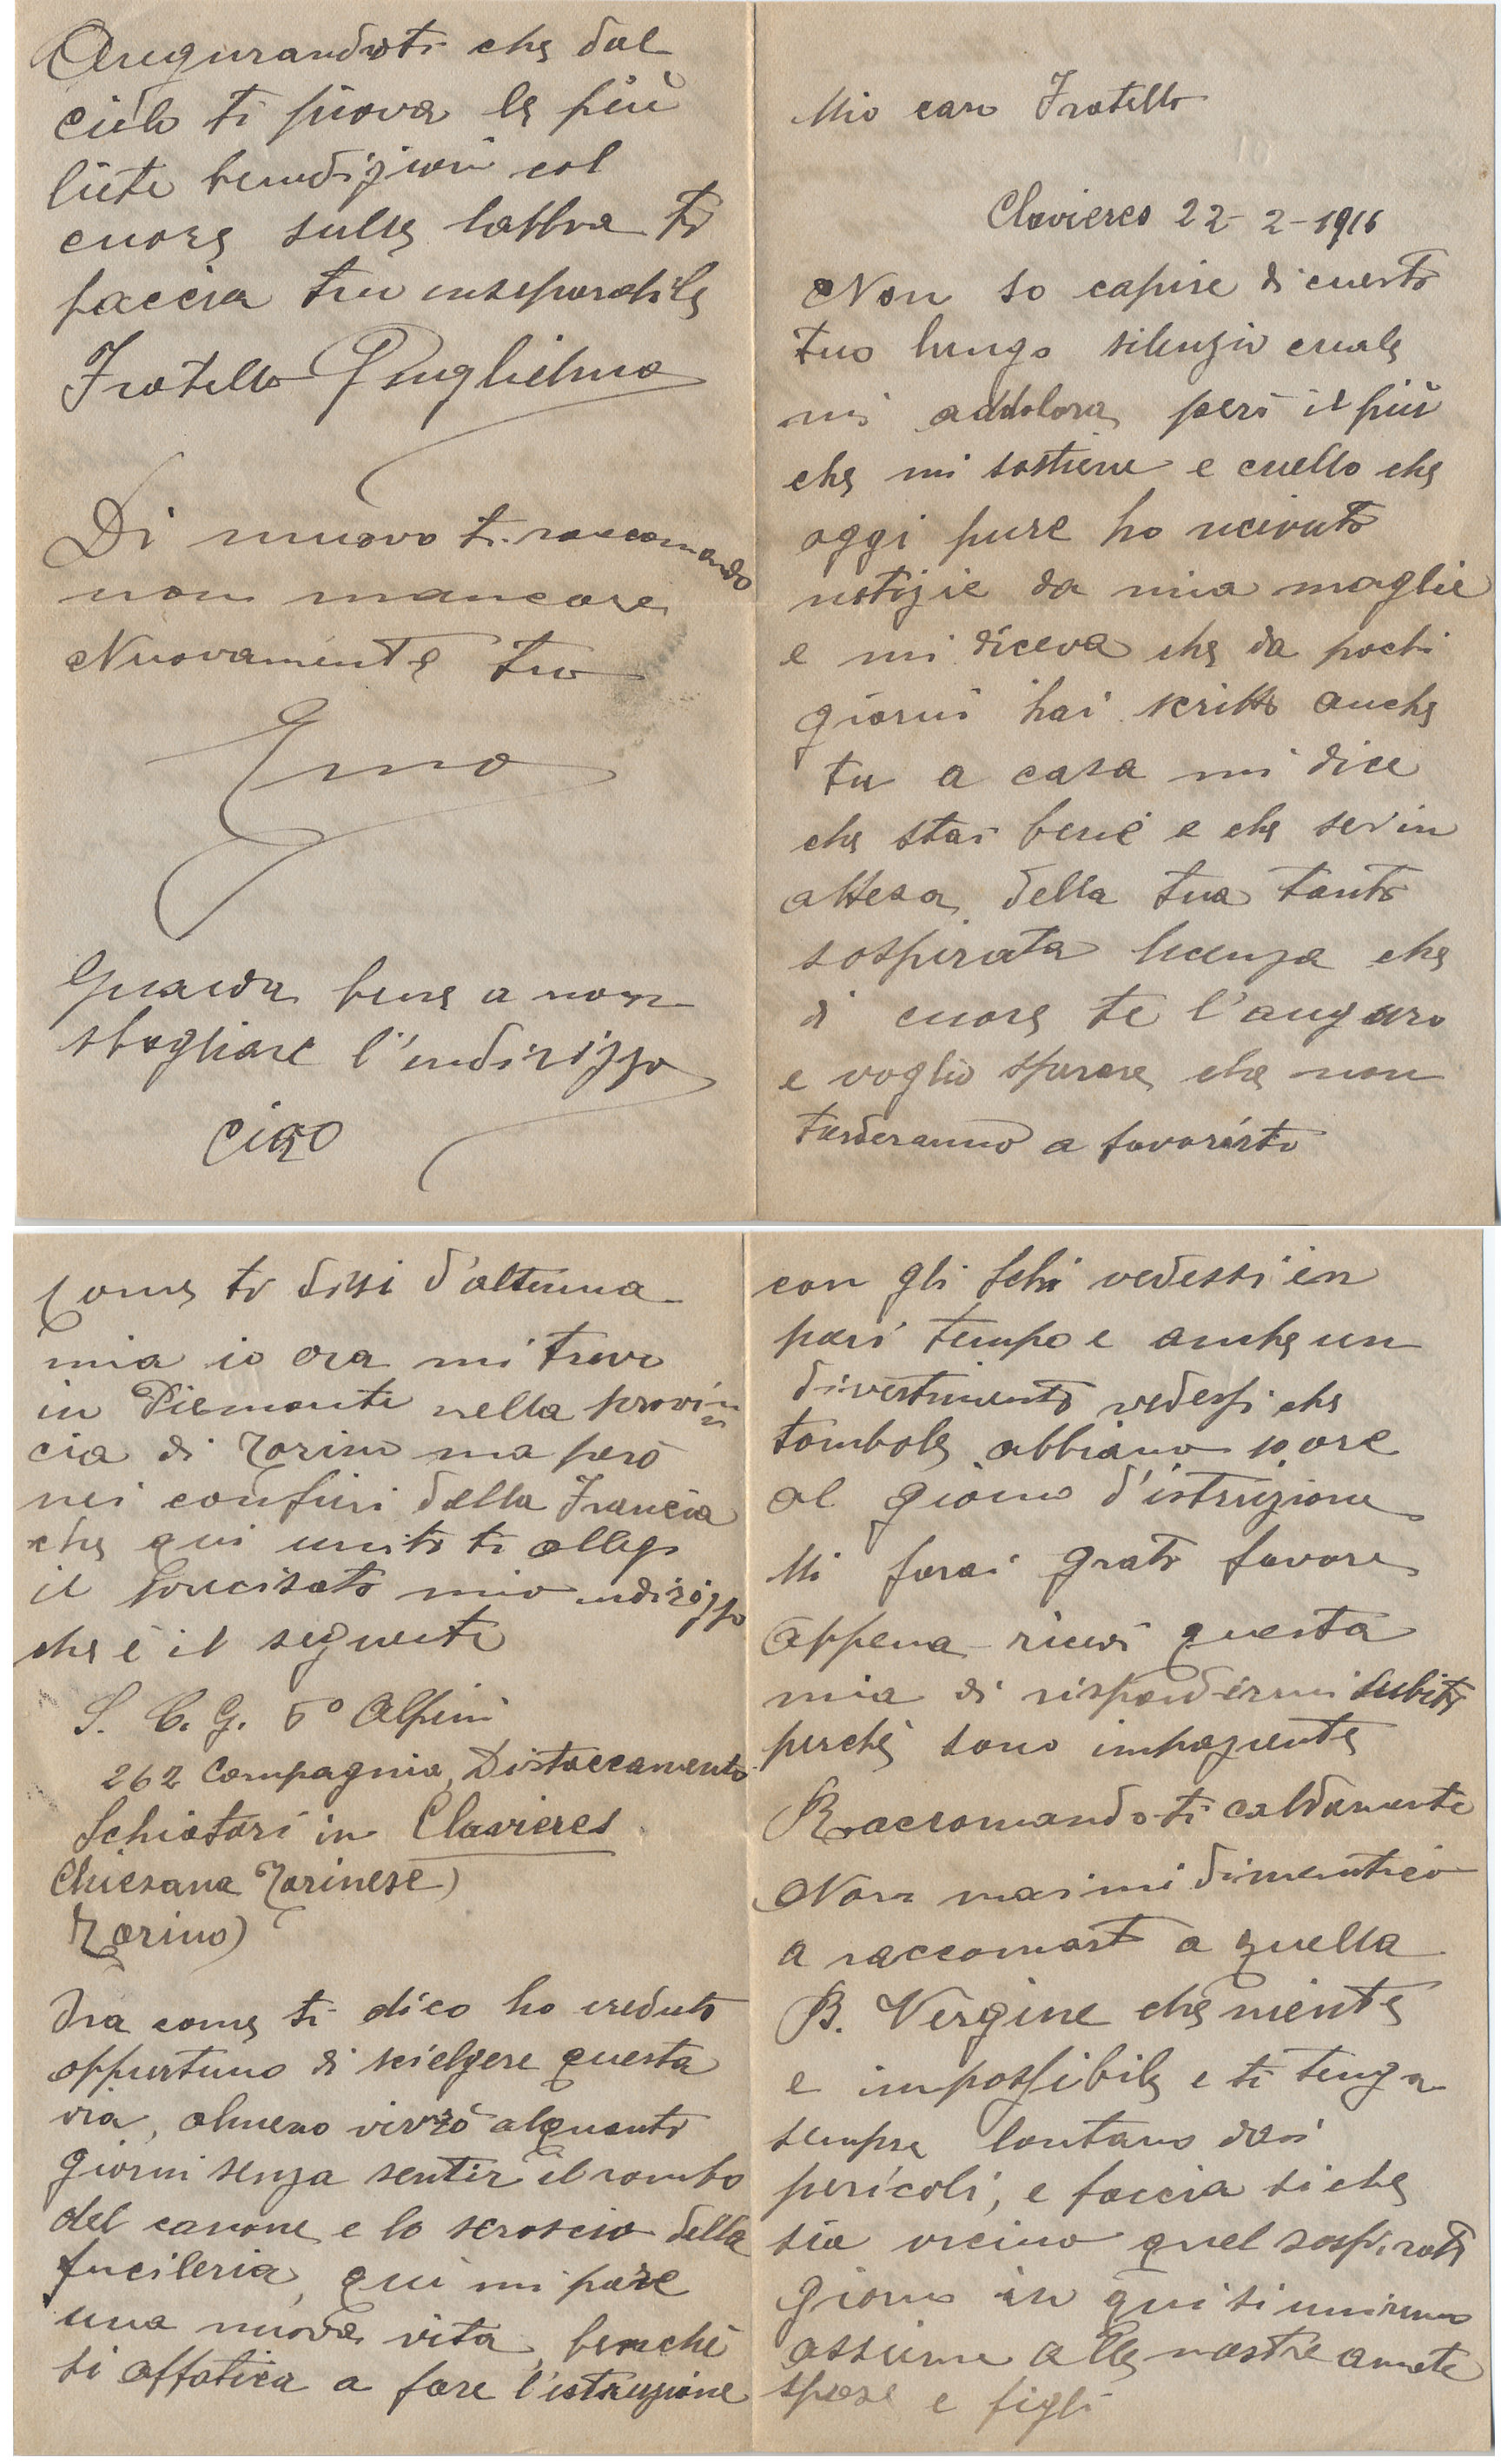 Mio caro Fratello
Clavieres 22-2-1916
Non so capire di cuesto
tuo lungo silenzio cuale
mi addolora però il più
che mi sostiene e cuello che
oggi pure ho ricevuto
notizie da mia moglie
e mi diceva che da pochi
giorni hai scritto anche
tu a casa mi dice
che stai bene e che sei in
attesa della tua tanto
sospirata licenza che
di cuore te l'auguro
e voglio sperare che non
tarderanno a favorirti
Come ti dissi d'altunna
mia io ora mi trovo
in Piemonte nella provin
cia di Torino ma però
nei confini della Francia
che qui unito ti allego
il precisato mio indirizzo
che è il seguente
S. C. G. 5° Alpini
262 Compagnia, Distaccamento
Schiatori in Clavieres
Chiesana Torinese)
Torino)
Ora come ti dico ho creduto
oppurtuno di scielgere questa
via, almeno vivrò alquanti
giorni senza sentir il rombo
del canone e lo scroscio della
fucileria, qui mi pare
una nuova vita, benchè
si affatica a fare l'istruzione
con gli schi vedessi in
pari tempo e anche un
divertimento vedessi che
tombole abbiamo 10 ore
al giorno d'istruzione
Mi farai grato favore
appena ricevi questa
mia di rispondermi subito
perchè sono impaziente
Raccomandoti caldamente
Non mai mi dimentico
a raccomarti a quella
B. Vergine che niente
e impossibile e ti tenga
sempre lontano dai
pericoli, e faccia si che
sia vicino quel sospirato
giorno in qui si uniremo
assieme alle nostre amate
spose e figli
Augurandoti che dal
cielo ti piova le più
liete benedizioni col
cuore sulle labbra ti
faccia tuo inseparabile
Fratello Guglielmo
Di nuovo ti raccomando
non mancare
Nuovamente tuo
Emo
Guarda bene a non
sbagliare l'indirizzo
Ciao